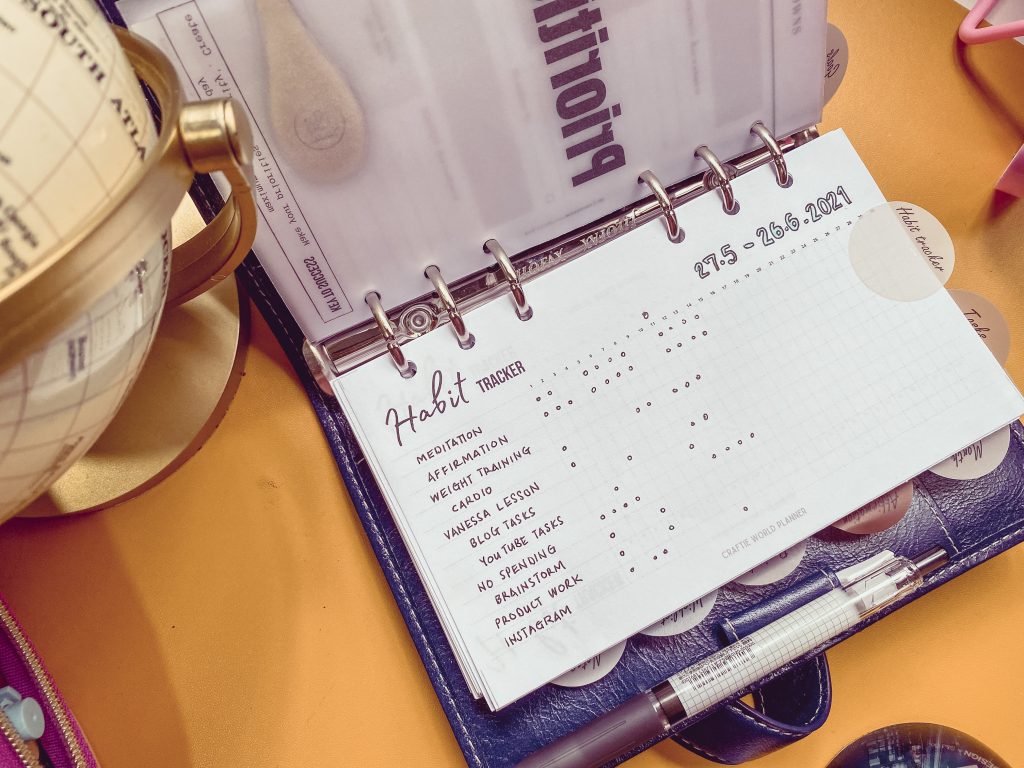 SOUTH
ATLA
prioritize
ity. Create
day
Make your priorities
HELLO SUCCESS
FILOFAX
27.5 - 26.6.2021
Habit tracker
Habit TRACKER
1 2 3 4 5 6 7 8 9 10 11 12 13 14 15 16 17 18 19 20 21 22 23 24 25 26 27
MEDITATION
AFFIRMATION
WEIGHT TRAINING
CARDIO
VANESSA LESSON
BLOG TASKS
YOUTUBE TASKS
NO SPENDING
BRAINSTORM
PRODUCT WORK
INSTAGRAM
CRAFTIE WORLD PLANNER
Month
Wishlist
DESIGN